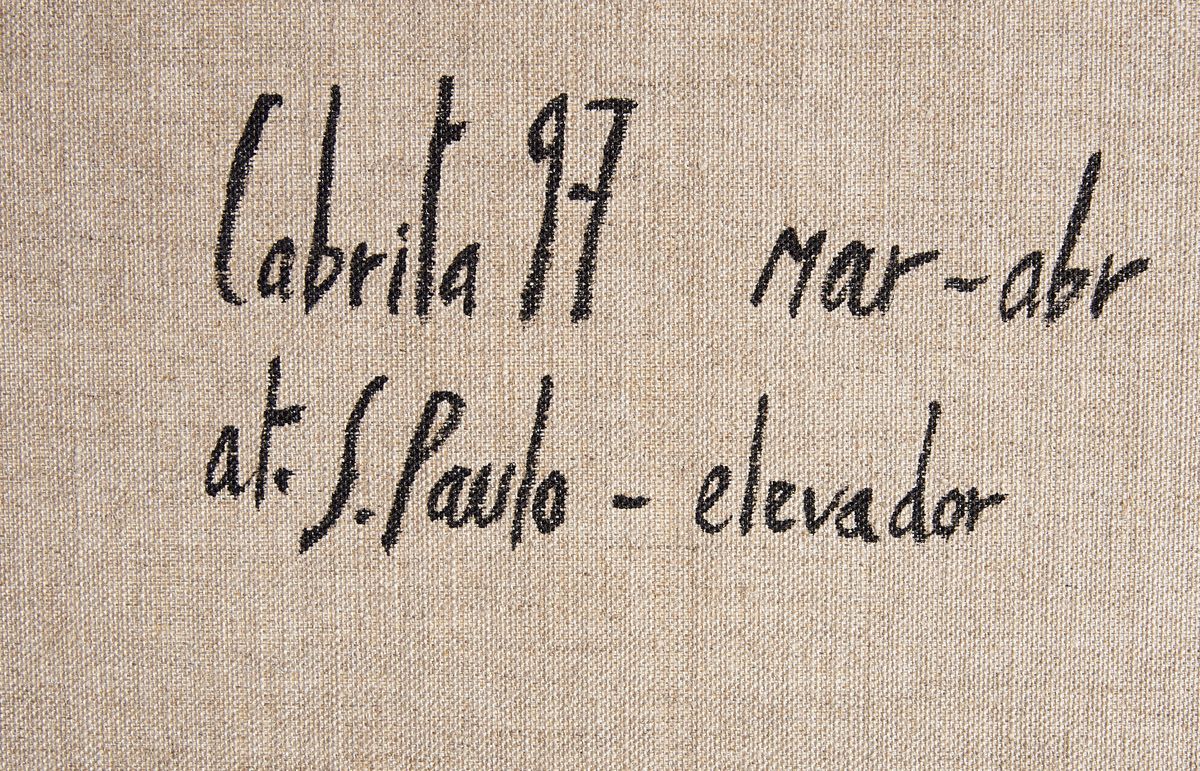 Cabrita 97 mar-abr
at. S. Paulo - elevador